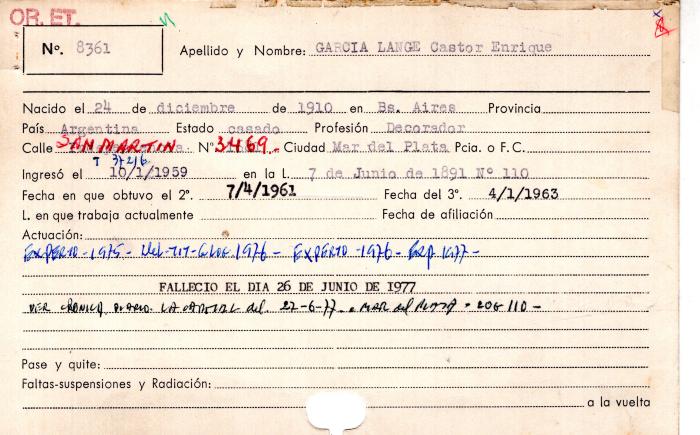 OR. ET.
Nº. 8361 Apellido y Nombre: GARCIA LANGE Castor Enrique
Nacido el 24 de diciembre de 1910 en Bs. Aires Provincia
País Argentina Estado casado Profesión Decorador
Calle SAN MARTIN Nº 3469.- Ciudad Mar del Plata Pcia. o F.C.
T 37216
Ingresó el 10/1/1959 en la L. 7 de Junio de 1891 Nº 110
Fecha en que obtuvo el 2º. 7/4/1961 Fecha del 3º. 4/1/1963
L. en que trabaja actualmente Fecha de afiliación
Actuación:
EXPERTO-1975- 1976- EXPERTO-1976- 1977-
FALLECIO EL DIA 26 DE JUNIO DE 1977
VER CRONICA DIARIO. LA CAPITAL del. 27-6-77. MAR del PLATA - LOG 110 -
Pase y quite:
Faltas-suspensiones y Radiación:
a la vuelta